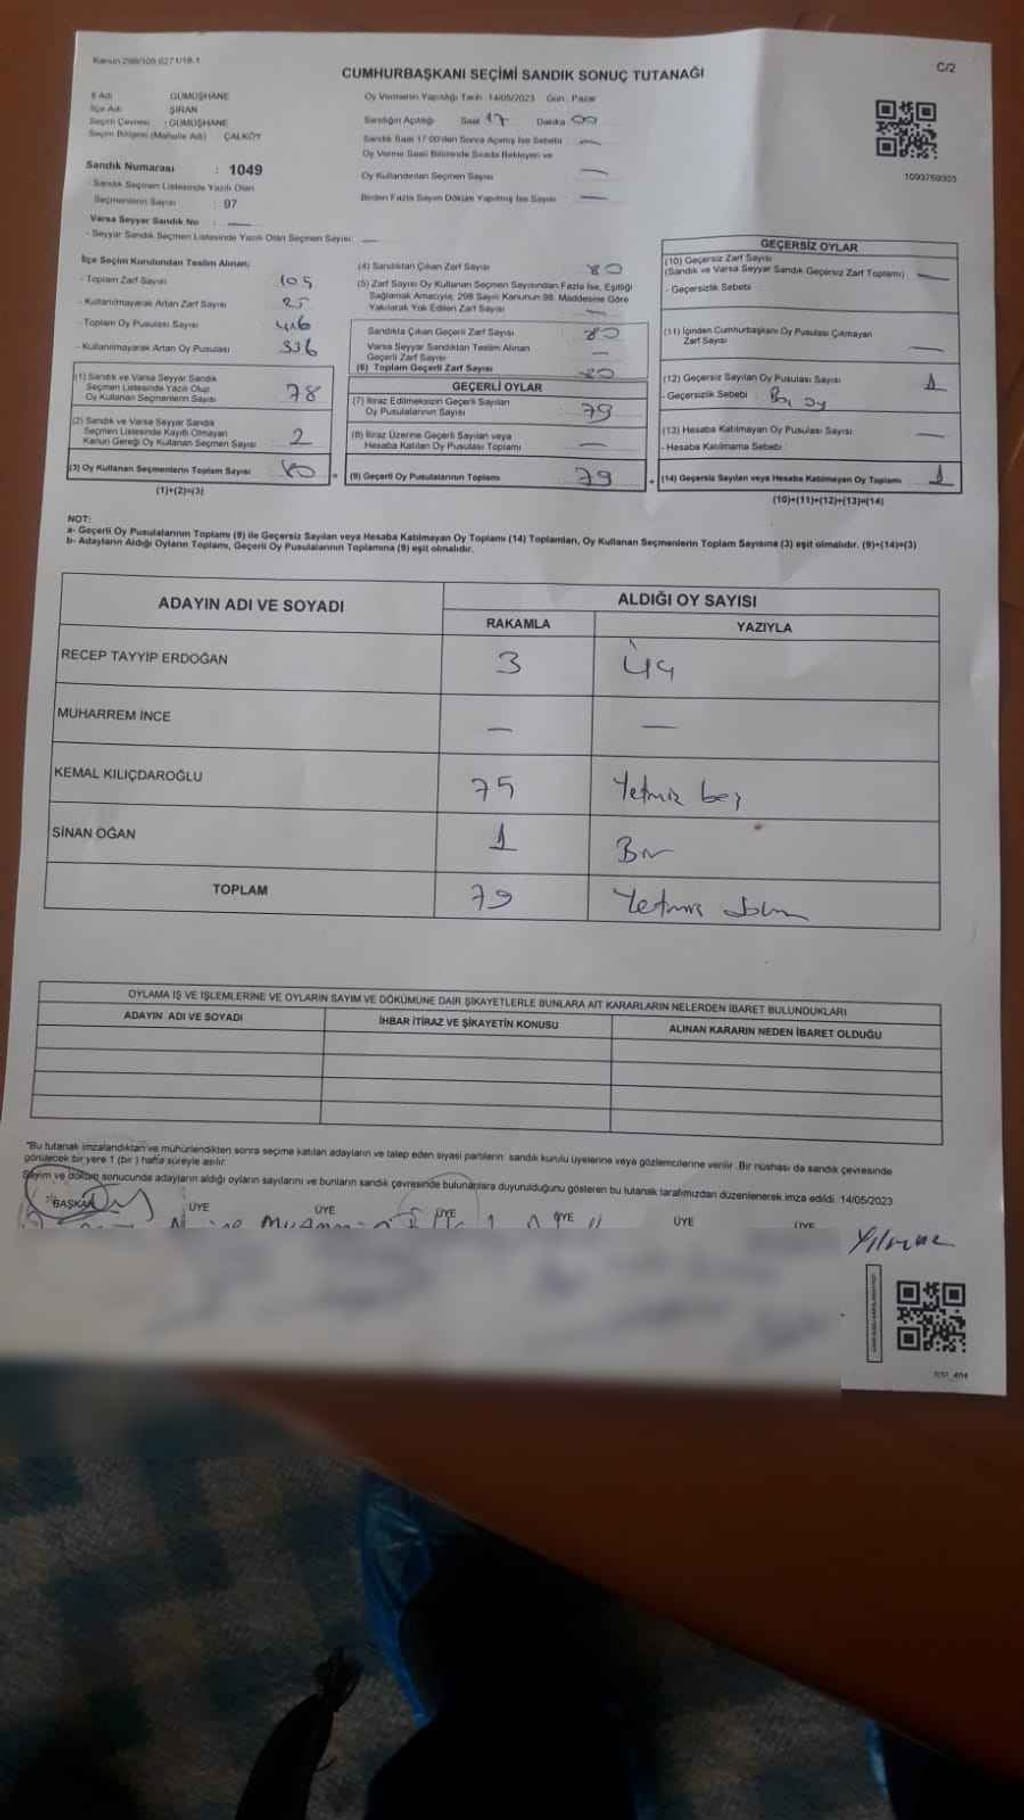 Kanun 298/105
C/2
CUMHURBAŞKANI SEÇİMİ SANDIK SONUÇ TUTANAĞI
İl Adı GÜMÜŞHANE
İlçe Adı ŞİRAN
Seçim Çevresi : GÜMÜŞHANE
Seçim Bölgesi (Mahalle Adı) ÇALKÖY
Sandık Numarası : 1049
Sandık Seçmen Listesinde Yazılı Olan
Seçmenlerin Sayısı : 97
Varsa Seyyar Sandık No —
- Seyyar Sandık Seçmen Listesinde Yazılı Olan Seçmen Sayısı: —
Oy Vermenin Yapıldığı Tarih :14/05/2023 Gün : Pazar
Sandığın Açıldığı Saat 17 Dakika 00
Sandık Saat 17:00'den Sonra Açılmış İse Sebebi —
Oy Verme Saati Bitiminde Sırada Bekleyen ve
Oy Kullandırılan Seçmen Sayısı —
Birden Fazla Sayım Döküm Yapılmış İse Sayısı —
1093769305
İlçe Seçim Kurulundan Teslim Alınan;
- Toplam Zarf Sayısı 105
- Kullanılmayarak Artan Zarf Sayısı 25
- Toplam Oy Pusulası Sayısı 416
- Kullanılmayarak Artan Oy Pusulası 336
(1) Sandık ve Varsa Seyyar Sandık
Seçmen Listesinde Yazılı Olup
Oy Kullanan Seçmenlerin Sayısı 78
(2) Sandık ve Varsa Seyyar Sandık
Seçmen Listesinde Kayıtlı Olmayan
Kanun Gereği Oy Kullanan Seçmen Sayısı 2
(3) Oy Kullanan Seçmenlerin Toplam Sayısı 80
(1)+(2)=(3)
(4) Sandıktan Çıkan Zarf Sayısı 80
(5) Zarf Sayısı Oy Kullanan Seçmen Sayısından Fazla İse, Eşitliği
Sağlamak Amacıyla, 298 Sayılı Kanunun 98. Maddesine Göre
Yakılarak Yok Edilen Zarf Sayısı —
Sandıkta Çıkan Geçerli Zarf Sayısı 80
Varsa Seyyar Sandıktan Teslim Alınan
Geçerli Zarf Sayısı —
(6) Toplam Geçerli Zarf Sayısı 80
GEÇERLİ OYLAR
(7) İtiraz Edilmeksizin Geçerli Sayılan
Oy Pusulalarının Sayısı 79
(8) İtiraz Üzerine Geçerli Sayılan veya
Hesaba Katılan Oy Pusulası Toplamı —
(9) Geçerli Oy Pusulalarının Toplamı 79
GEÇERSİZ OYLAR
(10) Geçersiz Zarf Sayısı
(Sandık ve Varsa Seyyar Sandık Geçersiz Zarf Toplamı) —
- Geçersizlik Sebebi
(11) İçinden Cumhurbaşkanı Oy Pusulası Çıkmayan
Zarf Sayısı —
(12) Geçersiz Sayılan Oy Pusulası Sayısı 1
- Geçersizlik Sebebi :
(13) Hesaba Katılmayan Oy Pusulası Sayısı —
- Hesaba Katılmama Sebebi
(14) Geçersiz Sayılan veya Hesaba Katılmayan Oy Toplamı 1
(10)+(11)+(12)+(13)=(14)
NOT:
a- Geçerli Oy Pusulalarının Toplamı (9) ile Geçersiz Sayılan veya Hesaba Katılmayan Oy Toplamı (14) Toplamları, Oy Kullanan Seçmenlerin Toplam Sayısına (3) eşit olmalıdır. (9)+(14)=(3)
b- Adayların Aldığı Oyların Toplamı, Geçerli Oy Pusulalarının Toplamına (9) eşit olmalıdır.
ADAYIN ADI VE SOYADI
ALDIĞI OY SAYISI
RAKAMLA YAZIYLA
RECEP TAYYİP ERDOĞAN 3 Üç
MUHARREM İNCE — —
KEMAL KILIÇDAROĞLU 75 Yetmiş beş
SİNAN OĞAN 1 Bir
TOPLAM 79 Yetmiş dokuz
OYLAMA İŞ VE İŞLEMLERİNE VE OYLARIN SAYIM VE DÖKÜMÜNE DAİR ŞİKAYETLERLE BUNLARA AİT KARARLARIN NELERDEN İBARET BULUNDUKLARI
ADAYIN ADI VE SOYADI İHBAR İTİRAZ VE ŞİKAYETİN KONUSU ALINAN KARARIN NEDEN İBARET OLDUĞU
"Bu tutanak imzalandıktan ve mühürlendikten sonra seçime katılan adayların ve talep eden siyasi partilerin sandık kurulu üyelerine veya gözlemcilerine verilir. Bir nüshası da sandık çevresinde
görülecek bir yere 1 (bir) hafta süreyle asılır.
Sayım ve döküm sonucunda adayların aldığı oyların sayılarını ve bunların sandık çevresinde bulunanlara duyurulduğunu gösteren bu tutanak tarafımızdan düzenlenerek imza edildi. 14/05/2023
BAŞKAN ÜYE ÜYE ÜYE ÜYE ÜYE ÜYE
Yılmaz